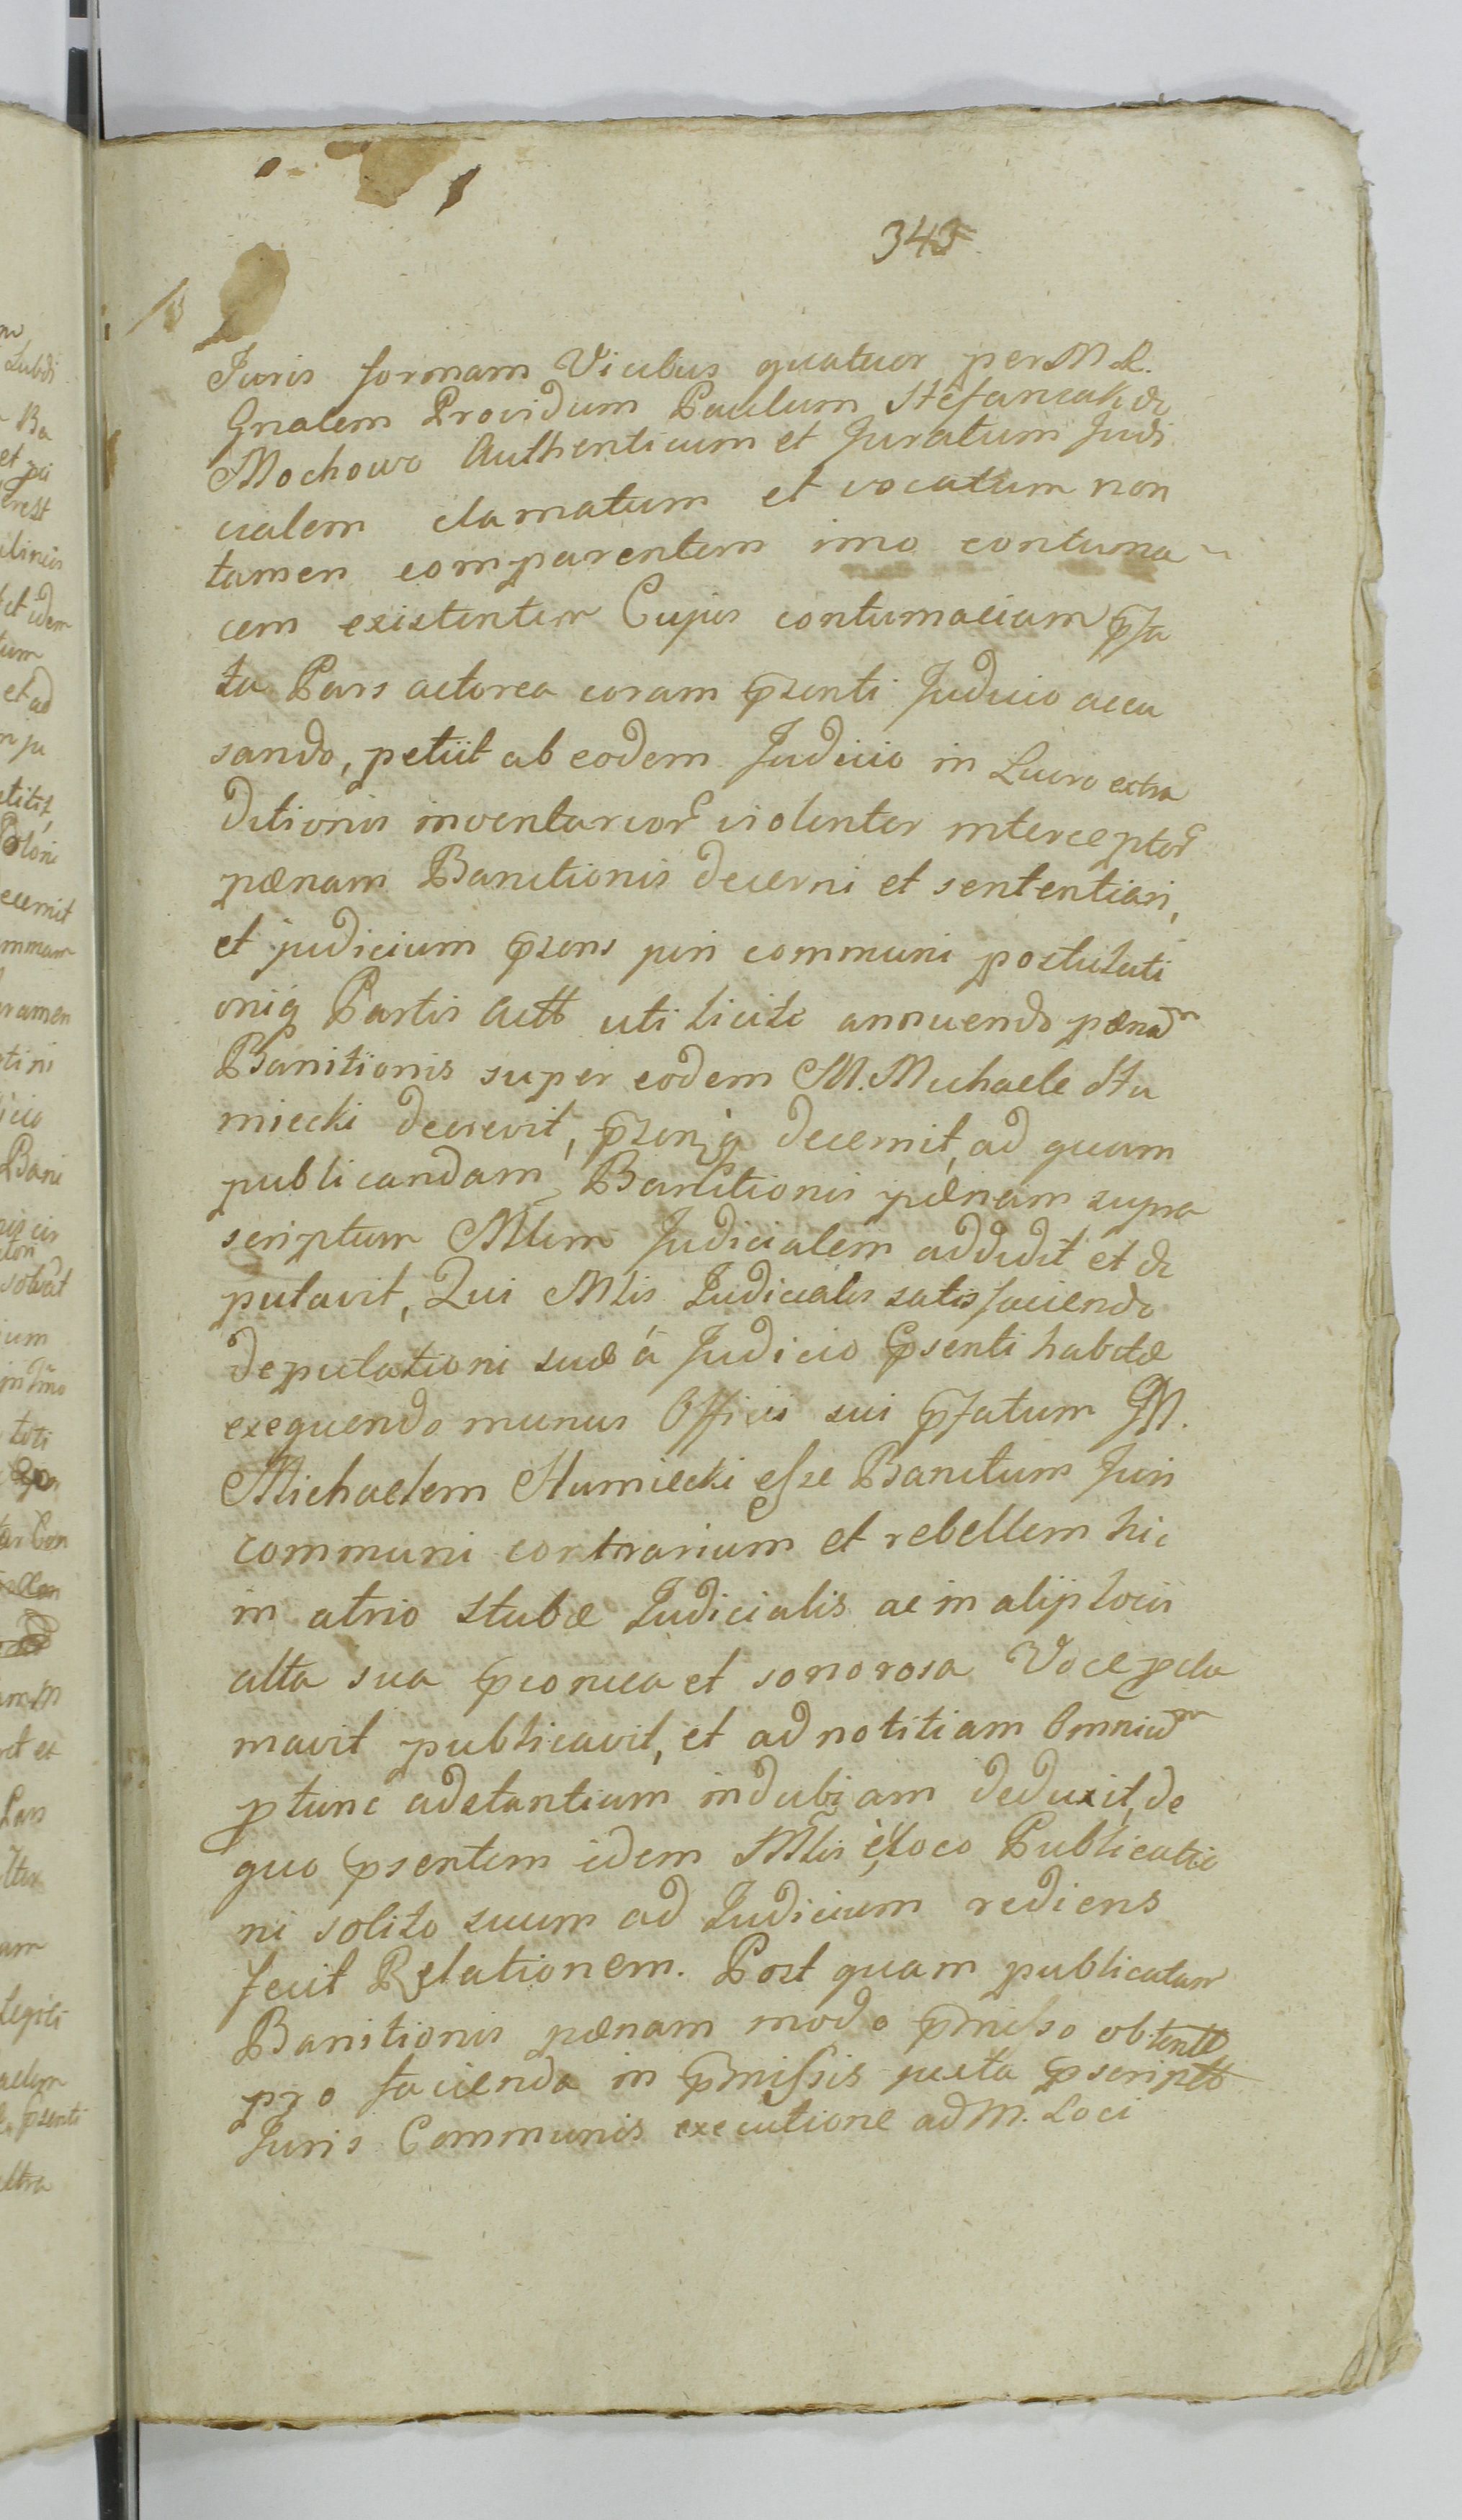 345
Juris formam Vicibus quatuor per M R.
Gnalem Providum Paulum Stefaniak de
Mochowo Authenticum et Juratum Judi
cialem clamatum et vocatum non
tamen comparentem imo contuma
cem existentem Cujus contumaciam pfa
ta Pars actorea coram pzenti Judicio accu
sando, petiit ab eodem Judicio in Lucro extra
ditionis inventarior violenter interceptor
pænam Banitionis decerni et sententiari,
et judicium pzens juri communi postulati
oniq Partis Actt uti licite annuendo pænam
Banitionis super eodem M. Michaele Hu
miecki decrevit, pzenq decernit, ad quam
publicandam Banitionis pænam supra
scriptum Mlem Judicialem addidit et de
putavit, Qui Mlis Judicialis satisfaciendo
deputationi suæ á Judicio psenti habitæ
exequendo munus Officii sui pfatum GM.
Michaelem Humiecki esse Banitum Juri
communi contrarium et rebellem hic
in atrio stubæ Judicialis ac in alijs locis
alta sua pconica et sonorosa Voce pcla
mavit publicavit, et ad notitiam Omnium
ptunc adstantium indubiam deduxit, de
quo psentem idem Mlis è loco Publicatio
ni solito suum ad Judicium rediens
fecit Relationem. Post quam publicatam
Banitionis pænam modo pmisso obtentt
pro facienda in pmissis juxta pscriptt
Juris Communis executione ad M. Loci